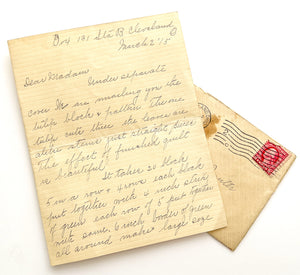 Box 131 Sta B Cleveland
March 2 '15
Dear Madam
Under separate
cover We are mailing you the
block & pattern the one
cute three the leaves are
just straight, since
the effect of finished quilt
is beautiful.
It takes 20 block
5 in a row & 4 rows each block
put together with 6 inch strip
of green each row of 5 put together
with same. 6 inch border of green
all around makes large size